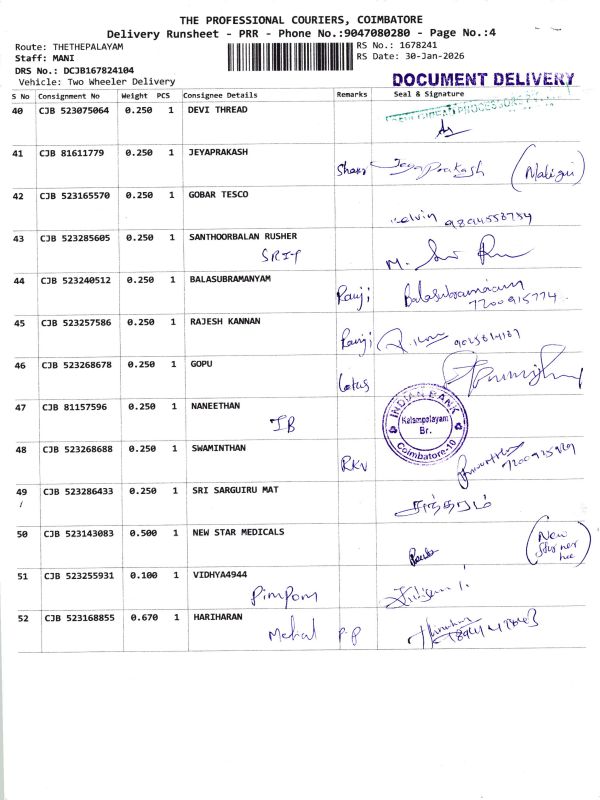 THE PROFESSIONAL COURIERS, COIMBATORE
Delivery Runsheet - PRR - Phone No.:9047080280 - Page No.:4
Route: THETHEPALAYAM
RS No.: 1678241
Staff: MANI
RS Date: 30-Jan-2026
DRS No.: DCJB167824104
Vehicle: Two Wheeler Delivery
DOCUMENT DELIVERY
S No Consignment No Weight PCS Consignee Details Remarks Seal & Signature
40 CJB 523075064 0.250 1 DEVI THREAD
41 CJB 81611779 0.250 1 JEYAPRAKASH
JeyaPrakash
42 CJB 523165570 0.250 1 GOBAR TESCO
Kelvin
43 CJB 523285605 0.250 1 SANTHOORBALAN RUSHER
SRIT
44 CJB 523240512 0.250 1 BALASUBRAMANYAM
Ranji Balasubramaniam
7200915774
45 CJB 523257586 0.250 1 RAJESH KANNAN
Ranji
46 CJB 523268678 0.250 1 GOPU
Lotus
47 CJB 81157596 0.250 1 NANEETHAN
IB
INDIAN BANK
Kalampalayam
Br.
Coimbatore-10
48 CJB 523268688 0.250 1 SWAMINTHAN
RKV
49 CJB 523286433 0.250 1 SRI SARGUIRU MAT
50 CJB 523143083 0.500 1 NEW STAR MEDICALS
New
51 CJB 523255931 0.100 1 VIDHYA4944
Pimpom
52 CJB 523168855 0.670 1 HARIHARAN